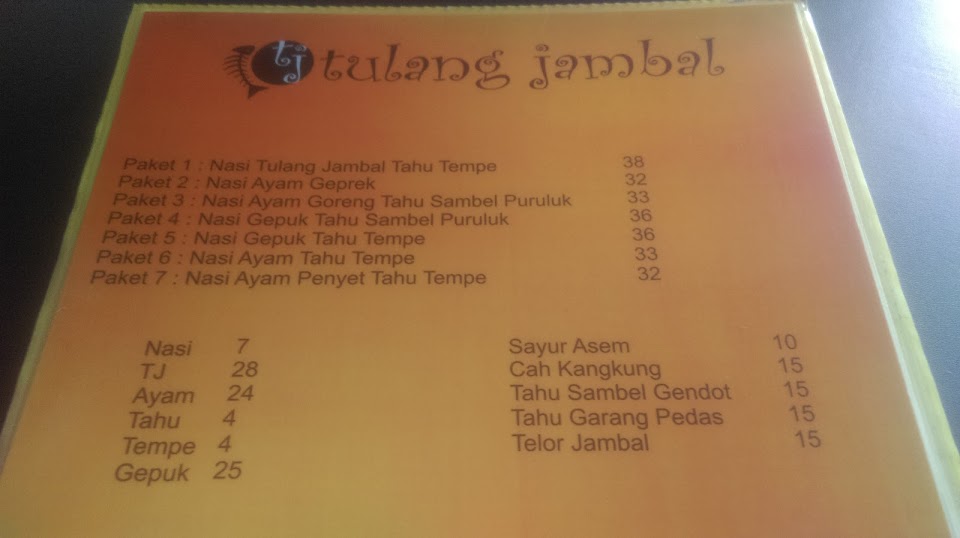 tj tulang jambal
Paket 1 : Nasi Tulang Jambal Tahu Tempe 38
Paket 2 : Nasi Ayam Geprek 32
Paket 3 : Nasi Ayam Goreng Tahu Sambel Puruluk 33
Paket 4 : Nasi Gepuk Tahu Sambel Puruluk 36
Paket 5 : Nasi Gepuk Tahu Tempe 36
Paket 6 : Nasi Ayam Tahu Tempe 33
Paket 7 : Nasi Ayam Penyet Tahu Tempe 32
Nasi 7
TJ 28
Ayam 24
Tahu 4
Tempe 4
Gepuk 25
Sayur Asem 10
Cah Kangkung 15
Tahu Sambel Gendot 15
Tahu Garang Pedas 15
Telor Jambal 15